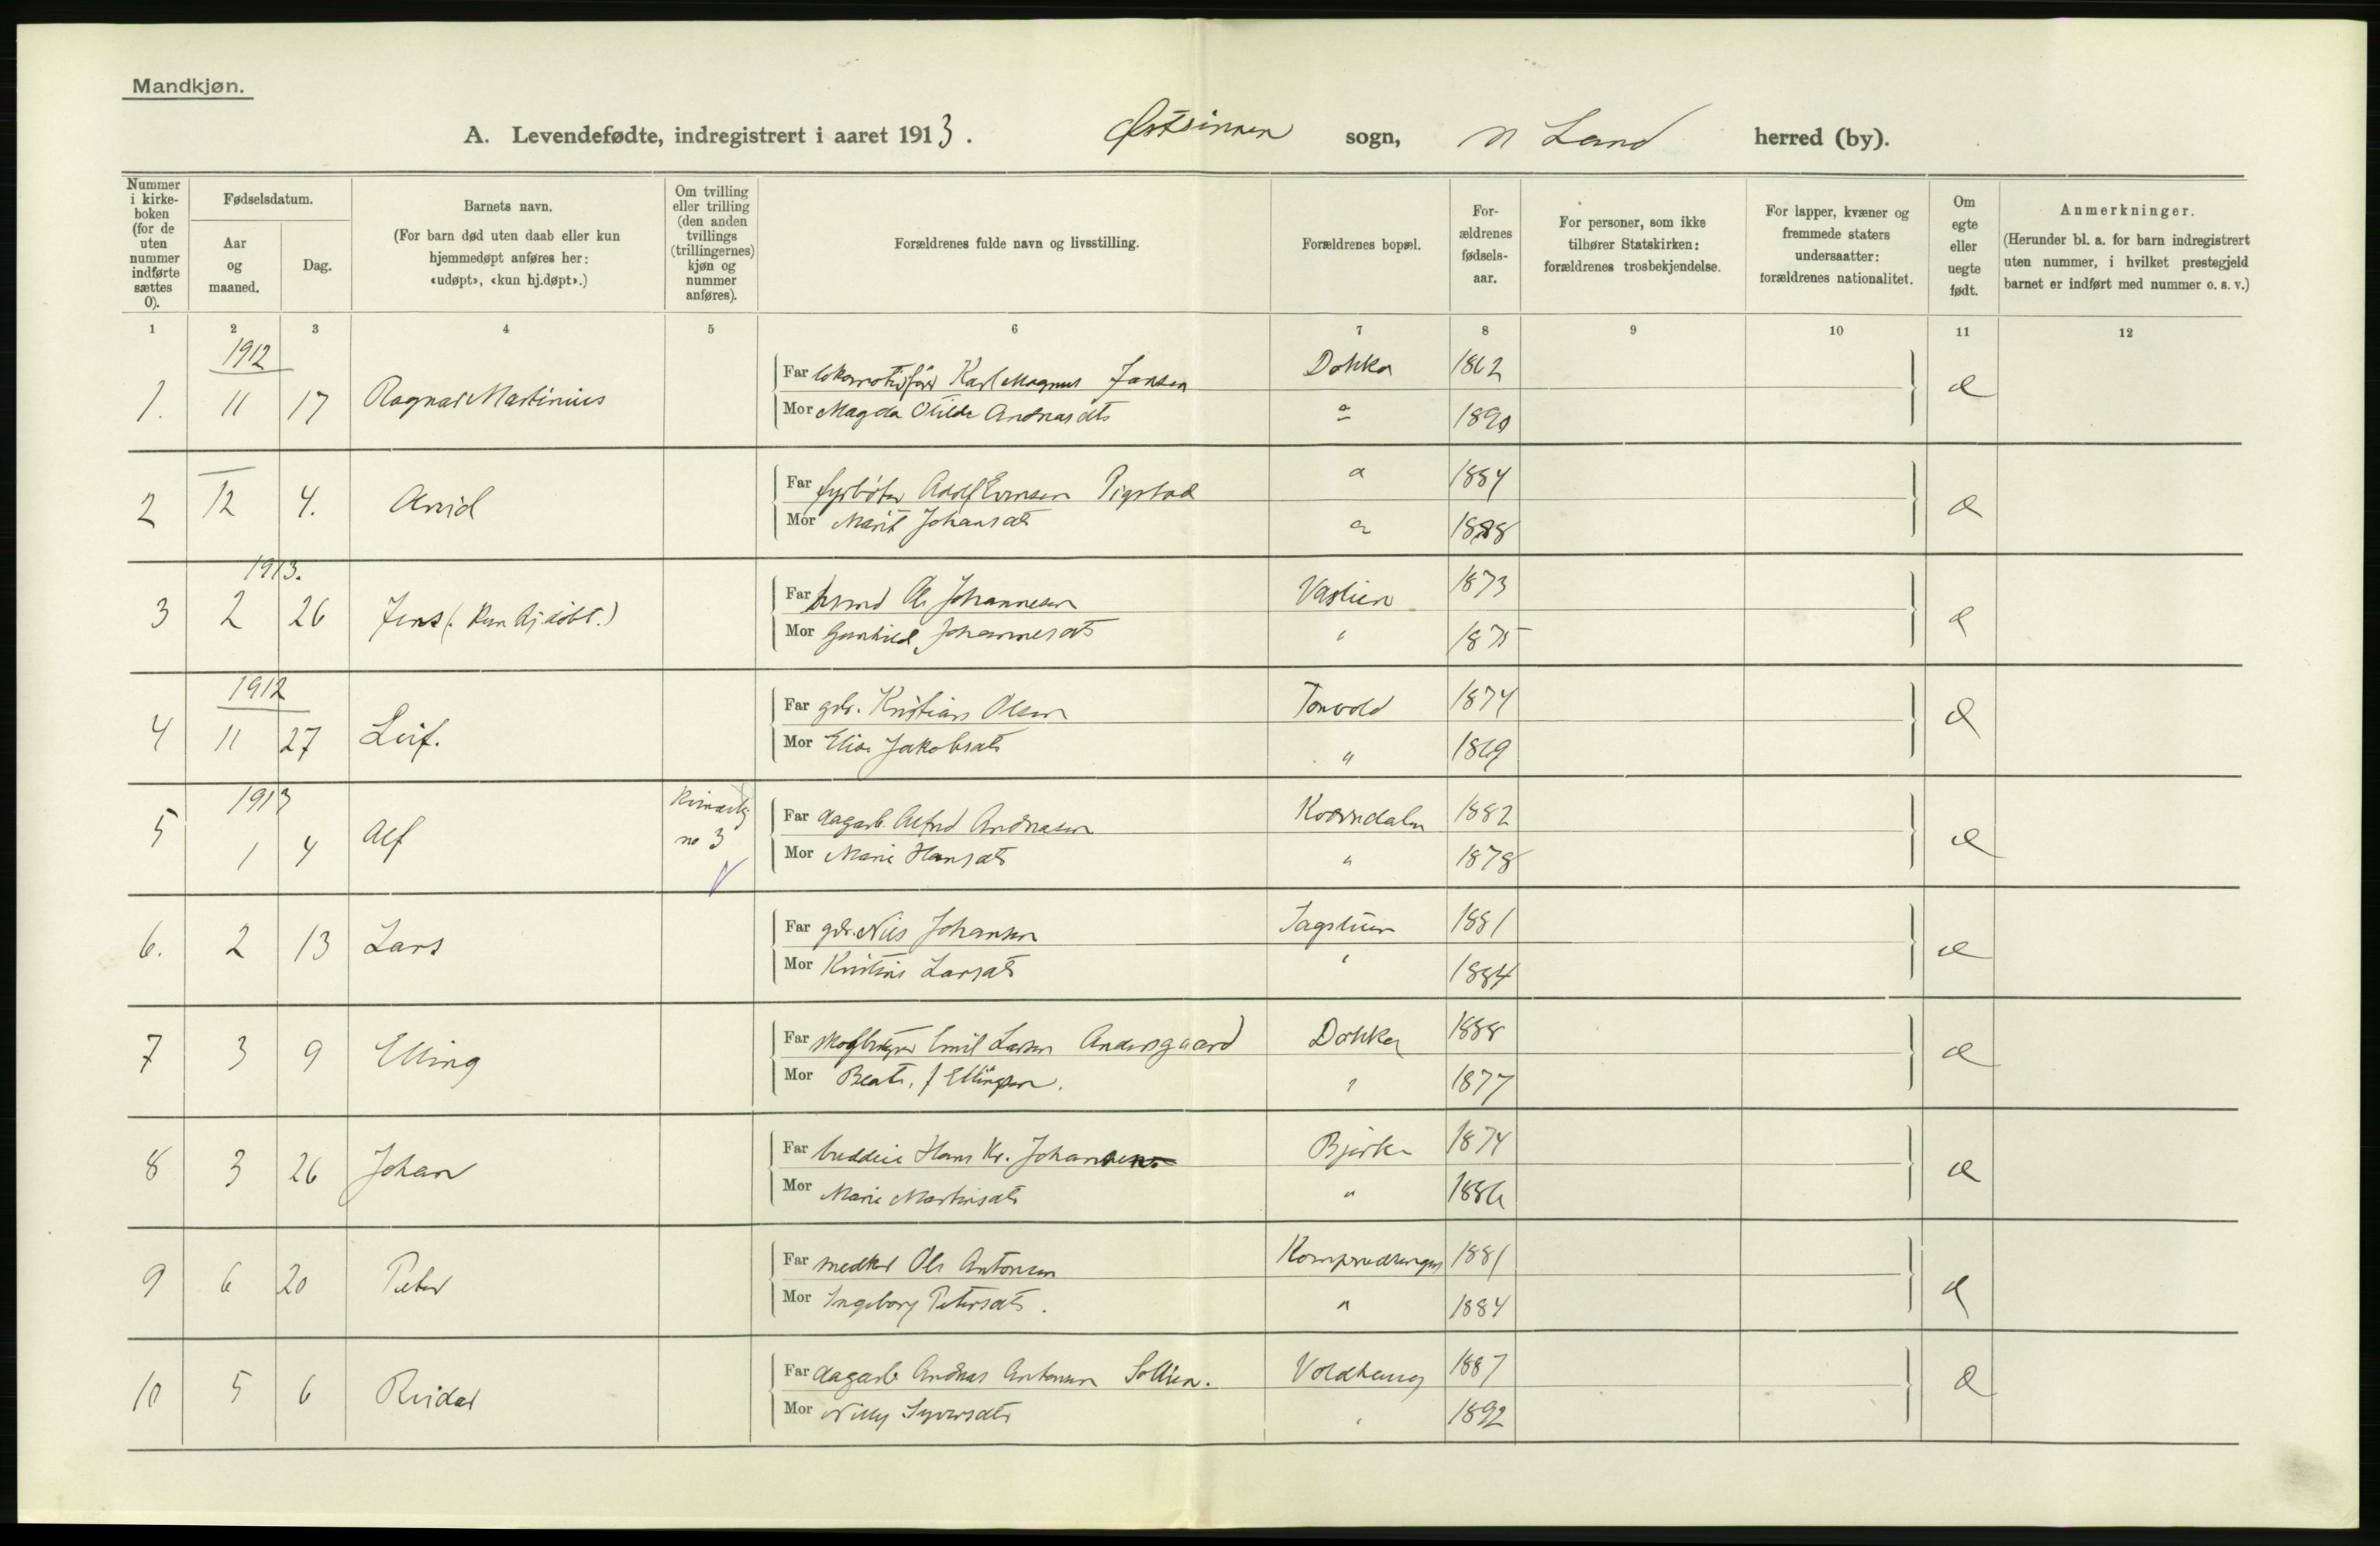 Mandkjøn.
A. Levendefødte, indregistrert i aaret 1913. Østsinnen sogn, N Land herred (by).
Nummer i kirke-boken (for de uten nummer indførte sættes 0).
Fødselsdatum.
Aar og maaned.
Dag.
Barnets navn.
(For barn død uten daab eller kun hjemmedøpt anføres her: «udøpt», «kun hj.døpt».)
Om tvilling eller trilling (den anden tvillings (trillingernes) kjøn og nummer anføres).
Forældrenes fulde navn og livsstilling.
Forældrenes bopæl.
For-ældrenes fødsels-aar.
For personer, som ikke tilhører Statskirken: forældrenes trosbekjendelse.
For lapper, kvæner og fremmede staters undersaatter: forældrenes nationalitet.
Om egte eller uegte født.
Anmerkninger.
(Herunder bl. a. for barn indregistrert uten nummer, i hvilket prestegjeld barnet er indført med nummer o. s. v.)
1 2 3 4 5 6 7 8 9 10 11 12
1912
1. 11 17 Ragnar Martinius Far Karl Magnus Jansen Dokka 1862 e
Mor Magda Otilde Andreasdtr 1890
2 12 4. Arvid Far fyrbøter Adolf Evensen Pigstad 1884 e
Mor Marit Johansdtr 1888
1913.
3 2 26 Jens (: kun hj.døbt.) Far Ole Johannesen 1873 e
Mor Gunhild Johannesdtr " 1875
1912
4 11 27 Leif. Far gdr. Kristian Olsen Tonvold 1874 e
Mor Elise Jakobsdtr " 1869
1913
5 1 4 Alf no 3 Far dagarb. Alfred Andreasen 1882 e
Mor Marie Hansdtr " 1878
6. 2 13 Lars Far gdr. Nils Johansen 1881 e
Mor Kristine Larsdtr " 1884
7 3 9 Elling Far Emil Larsen Andersgaard Dokka 1888 e
Mor Beate, f Ellingsen. " 1877
8 3 26 Johan Far Hans Kr. Johansen Bjørke 1874 e
Mor Marie Martinsdtr " 1886
9 6 20 Peter Far snedker Ole Antonsen 1881 e
Mor Ingeborg Petersdtr. " 1884
10 5 6 Reidar Far dagarb Andreas Antonsen Sollien. Voldhaug 1887 e
Mor Nilly Syversdtr " 1892